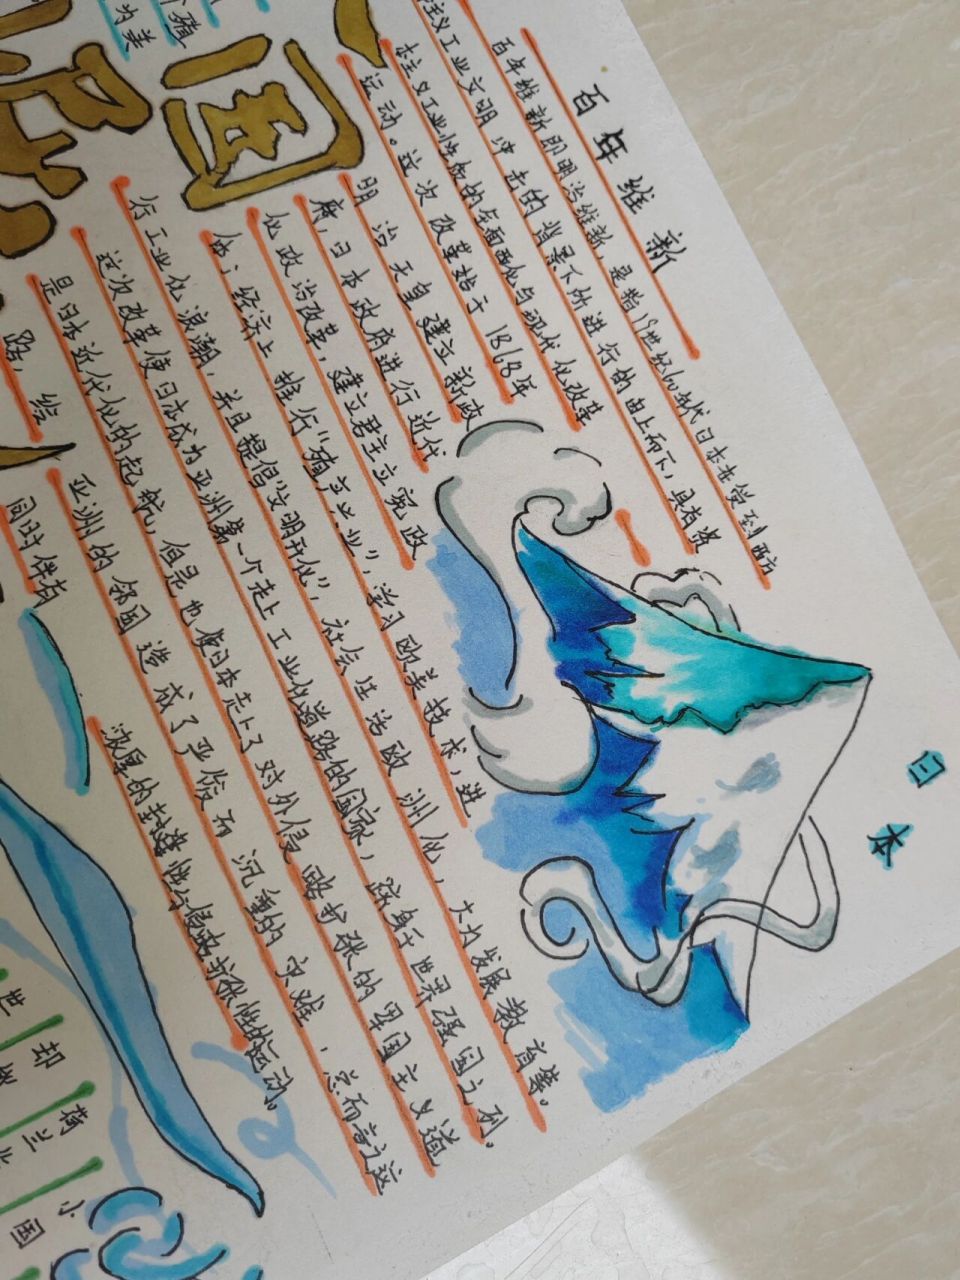 百年维新
百年维新即明治维新，是指19世纪60年代日本在受到西方
主义工业文明冲击的背景下所进行的由上而下，具有资
本主义工业性质的全面西化与现代化改革
运动。这次改革始于1868年
明治天皇建立新政
府，日本政府进行近代
化政治改革，建立君主立宪政
体；经济上推行“殖产兴业”，学习欧美技术，进
行工业化浪潮，并且提倡“文明开化”，社会生活欧洲化，大力发展教育等。
这次改革使日本成为亚洲第一个走上工业化道路的国家，跻身于世界强国之列。
是日本近代化的起航，但是也使日本走上了对外侵略扩张的军国主义道
路，给
亚洲的邻国造成了严重而沉重的灾难，总而言之这
同时伴有
浓厚的封建性与侵略扩张性的运动。
日本
国
为美
世
却
荷兰
小
国